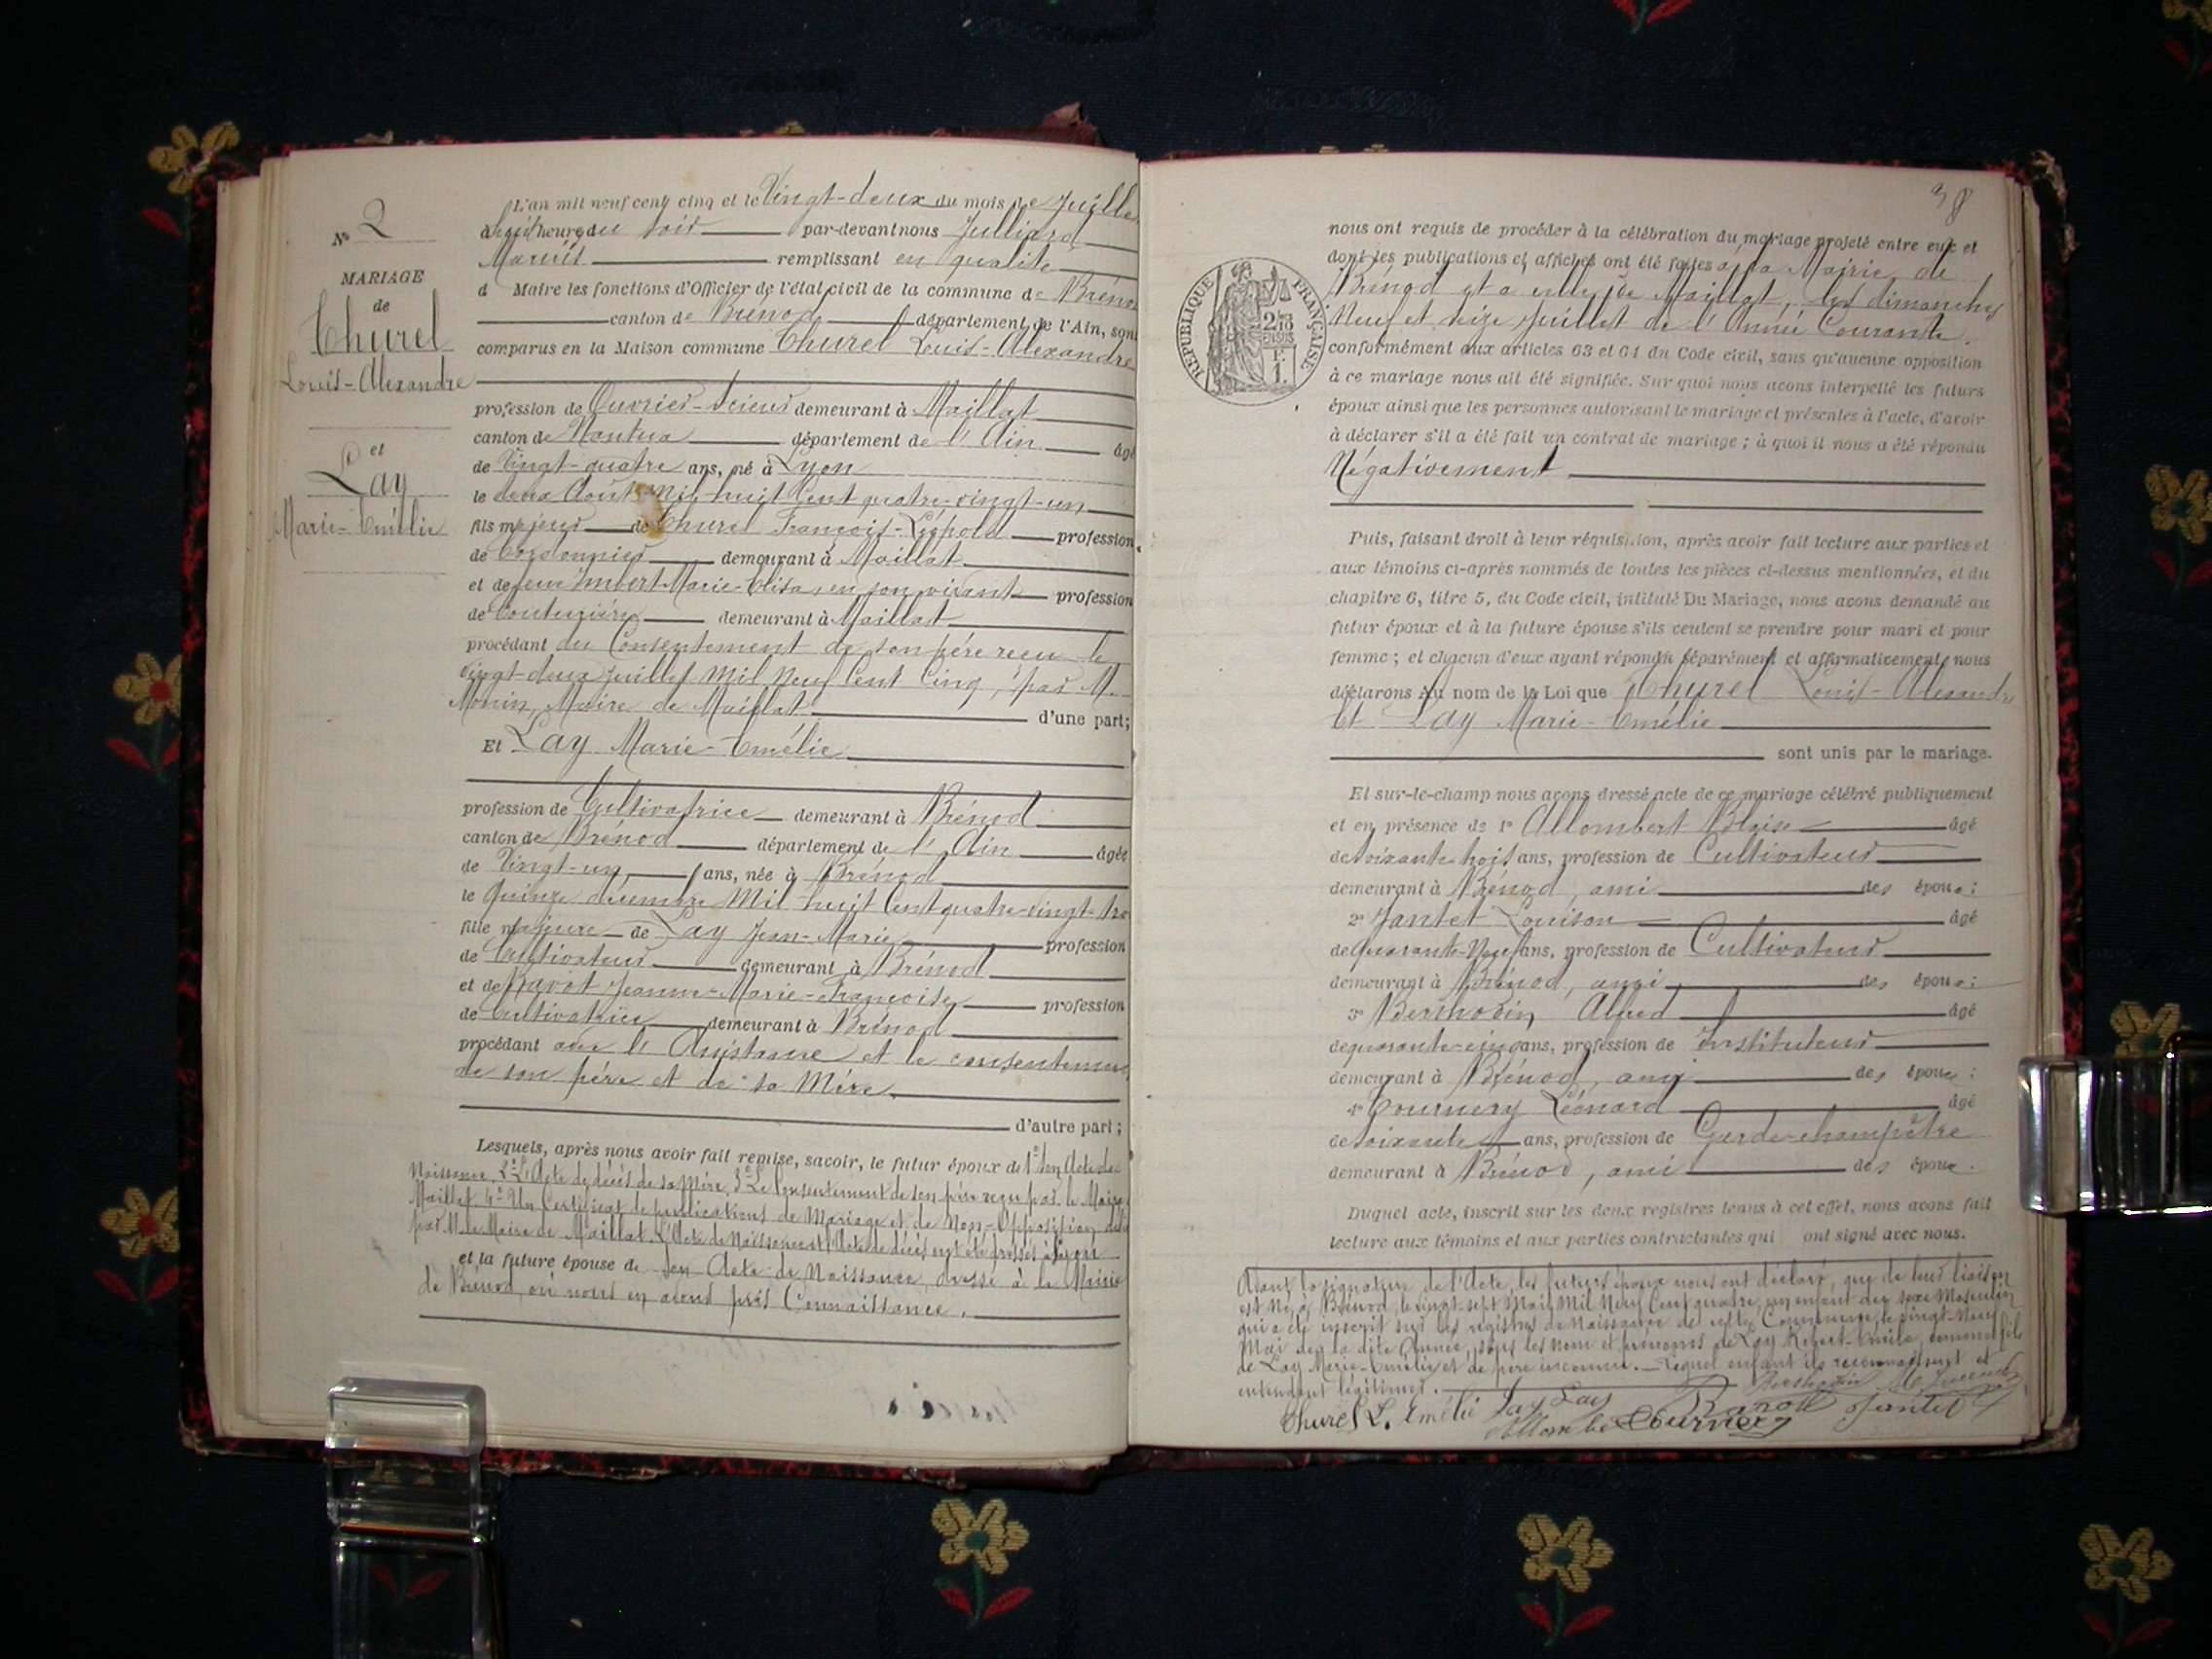 L'an mil neuf cent cinq et le Vingt-deux du mois de Juillet
à huit heures du soir par-devant nous Julliard
Marius remplissant en qualité
d Maire les fonctions d'Officier de l'état civil de la commune de Brénod
canton de Brénod département de l'Ain, sont
comparus en la Maison commune Thurel Louis-Alexandre
N° 2
MARIAGE
de
Thurel
Louis-Alexandre
et
Lay
Marie-Emélie
profession de Ouvrier-scieur demeurant à Maillat
canton de Nantua département de l'Ain âgé
de Vingt-quatre ans, né à Lyon
le deux Août Mil huit Cent quatre-vingt-un
fils majeur de Thurel François-Léopold profession
de Cordonnier demeurant à Maillat
et de feue Imbert Marie-Elisa, en son vivant profession
de Couturière demeurant à Maillat
procédant du Consentement de son père reçu le
vingt-deux Juillet Mil Neuf Cent Cinq, par M.
Monin, Maire de Maillat d'une part;
Et Lay Marie-Emélie
profession de Cultivatrice demeurant à Brénod
canton de Brénod département de l'Ain âgée
de Vingt-un ans, née à Brénod
le Quinze décembre Mil huit Cent quatre-vingt-tro
fille majeure de Lay Jean-Marie profession
de Cultivateur demeurant à Brénod
et de Jeanne-Marie-Françoise profession
de Cultivatrice demeurant à Brénod
procédant avec l'Assistance et le consentement
de son père et de sa Mère.
d'autre part;
Lesquels, après nous avoir fait remise, savoir, le futur époux de 1° Son Acte de
Naissance, 2° L'Acte de décès de sa Mère, 3° Le Consentement de son père reçu par le Maire
Maillat 4° Un Certificat de publications de Mariage et de Non-Opposition
par M. le Maire de Maillat. L'Acte de Naissance et l'Acte de décès ont été dressés à Lyon
et la future épouse de Son Acte de Naissance, dressé à la Mairie
de Brénod, où nous en avons pris Connaissance.
38
REPUBLIQUE FRANÇAISE
nous ont requis de procéder à la célébration du mariage projeté entre eux et
dont les publications et affiches ont été faites à la Mairie de
Brénod et à celle de Maillat, les dimanches
Neuf et seize Juillet de l'Année Courante.
conformément aux articles 63 et 64 du Code civil, sans qu'aucune opposition
à ce mariage nous ait été signifiée. Sur quoi nous avons interpellé les futurs
époux ainsi que les personnes autorisant le mariage et présentes à l'acte, d'avoir
à déclarer s'il a été fait un contrat de mariage; à quoi il nous a été répondu
Négativement
Puis, faisant droit à leur réquisition, après avoir fait lecture aux parties et
aux témoins ci-après nommés de toutes les pièces ci-dessus mentionnées, et du
chapitre 6, titre 5, du Code civil, intitulé Du Mariage, nous avons demandé au
futur époux et à la future épouse s'ils veulent se prendre pour mari et pour
femme; et chacun d'eux ayant répondu séparément et affirmativement, nous
déclarons Au nom de la Loi que Thurel Louis-Alexandre
Et Lay Marie-Emélie
sont unis par le mariage.
Et sur-le-champ nous avons dressé acte de ce mariage célébré publiquement
et en présence de 1° Allombert Blaise âgé
de soixante-trois ans, profession de Cultivateur
demeurant à Brénod, ami des époux;
2° Jantet Louison âgé
de quarante-Neuf ans, profession de Cultivateur
demeurant à Brénod, ami des époux;
3° Alfred âgé
de quarante-cinq ans, profession de Instituteur
demeurant à Brénod, ami des époux;
4° Tournery Léonard âgé
de soixante ans, profession de Garde-champêtre
demeurant à Brénod, ami des époux.
Duquel acte, inscrit sur les deux registres tenus à cet effet, nous avons fait
lecture aux témoins et aux parties contractantes qui ont signé avec nous.
Avant la signature de l'Acte, les futurs époux nous ont déclaré, que de leur liaison
est né, à Brénod, le vingt-sept Mai Mil Neuf Cent quatre, un enfant du sexe Masculin
qui a été inscrit sur les registres de Naissance de cette Commune, le vingt-Neuf
Mai de la dite Année, sous les nom et prénoms de Lay Robert-Emile, comme fils
de Lay Marie-Emélie et de père inconnu. lequel enfant ils reconnaissent et
entendent légitimer.
Thurel L. Emélie Lay Lay Jantet
Tournery